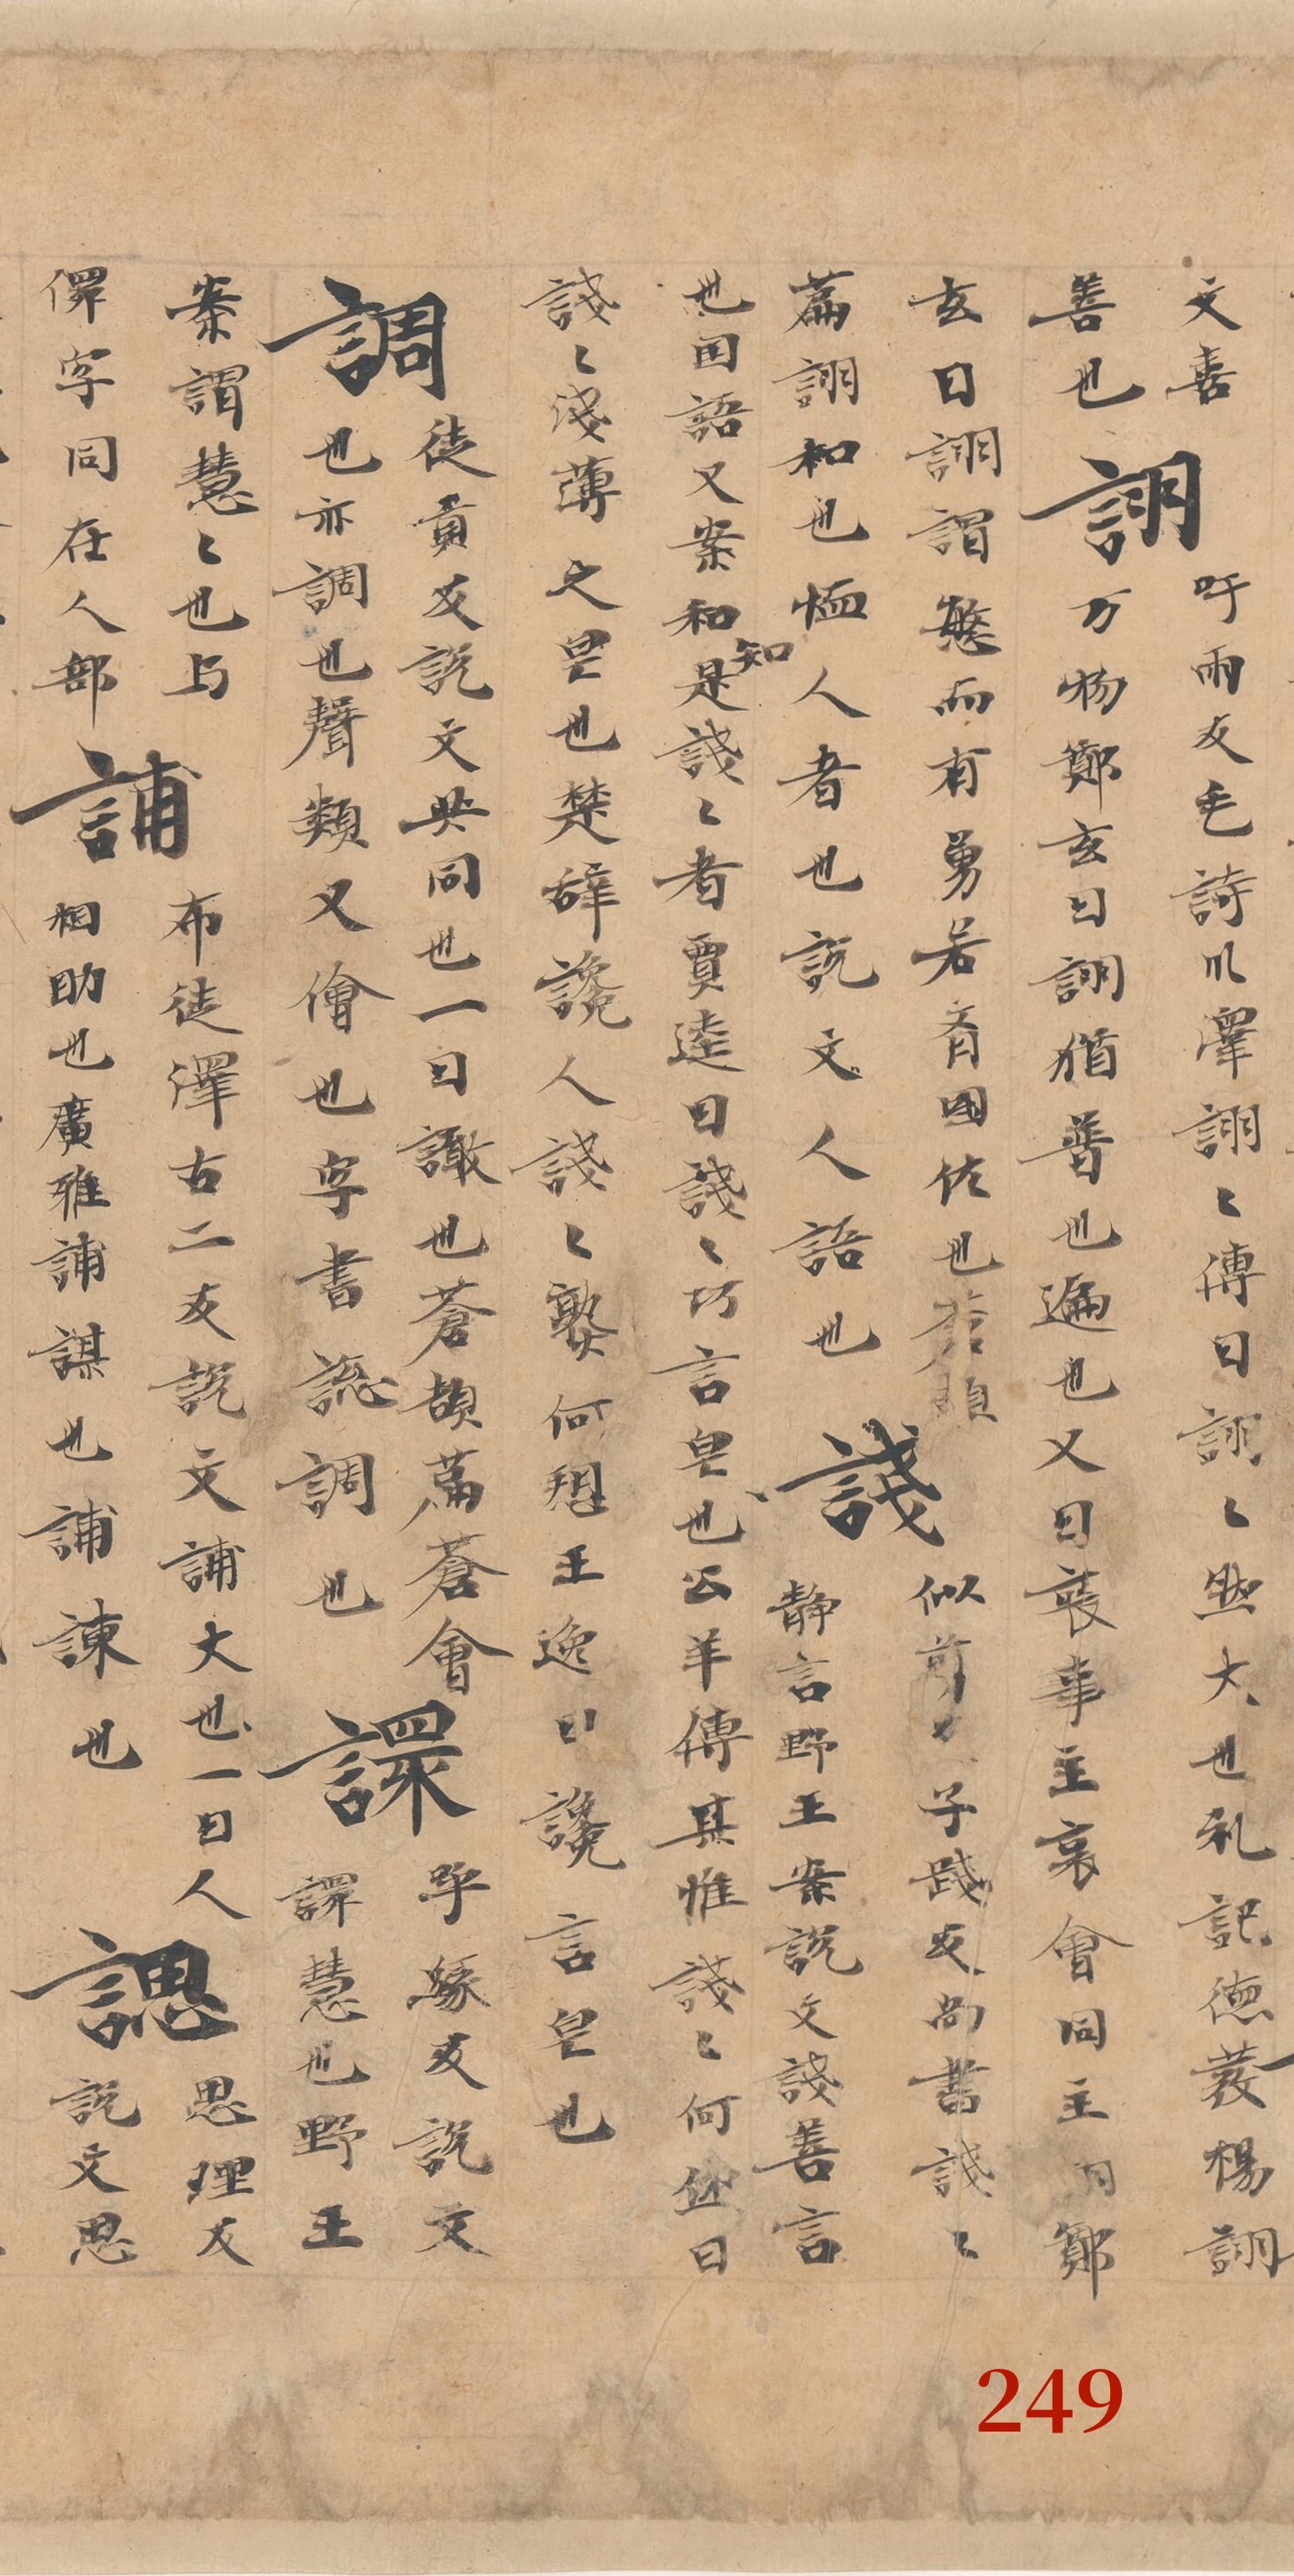 文喜
善也
詡
吁雨反毛詩川澤詡〻傳曰詡〻然大也礼記德發楊詡
万物鄭玄曰詡猶普也遍也又曰喪事主哀會同主詡鄭
玄曰詡謂慜而有勇若齊國佐也蒼頡
篇詡和也恤人者也說文人語也
諓
似前〻子踐反尚書諓〻
静言野王案說文諓善言
也国語又案和是諓〻者賈逵曰諓〻巧言皃也公羊傳其惟諓〻何休曰
知
諓〻淺薄之皃也楚辞讒人諓〻孰何想王逸曰讒言皃也
調
徒貢反說文共同也一曰譀也蒼頡萹蒼會
也亦調也聲類又儈也字書諗調也
譞
乎緣反說文
譞慧也野王
案謂慧〻也与
儇字同在人部
誧
布徒澤古二反說文誧大也一曰人
相助也廣雅誧謀也誧諫也
諰
思理反
說文思
249